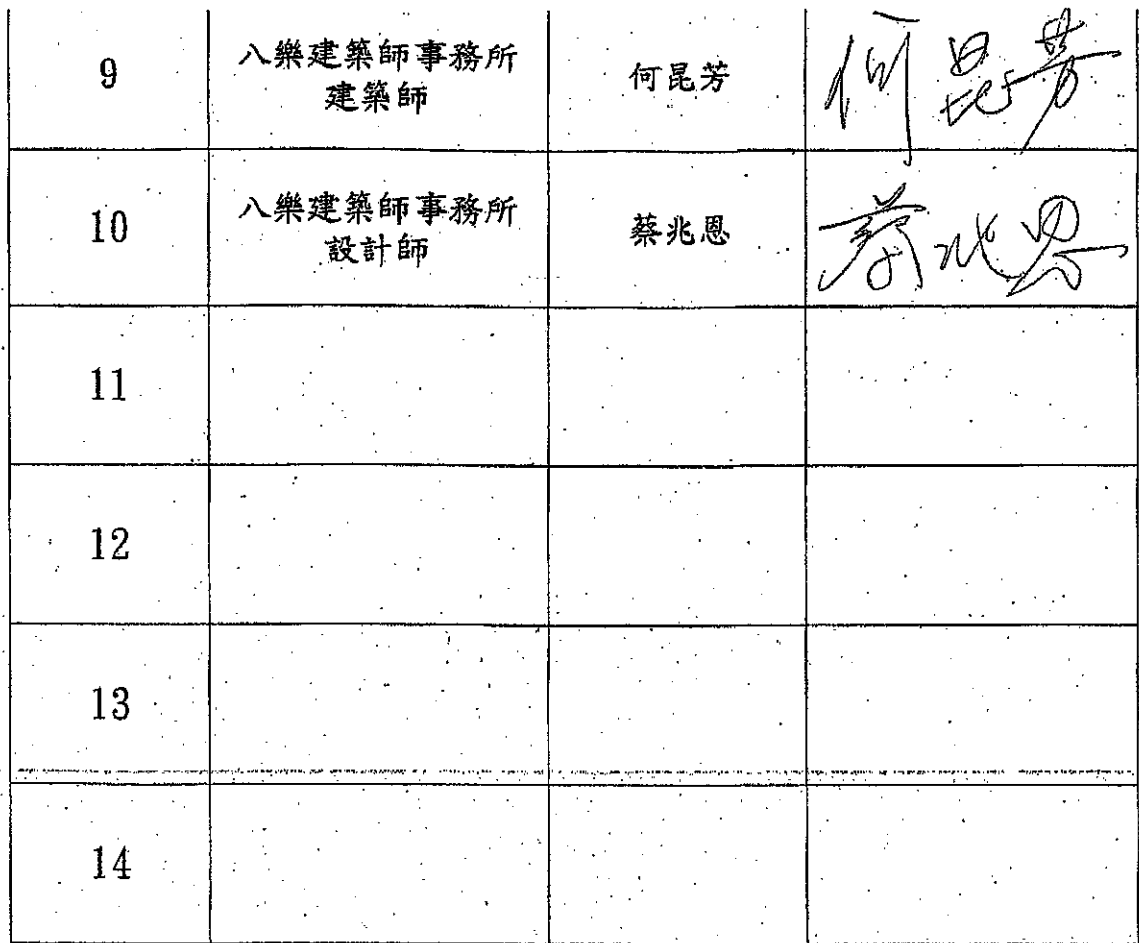 9
八樂建築師事務所
建築師
何昆芳
何昆芳
10
八樂建築師事務所
設計師
蔡兆恩
蔡兆恩
11
12
13
14